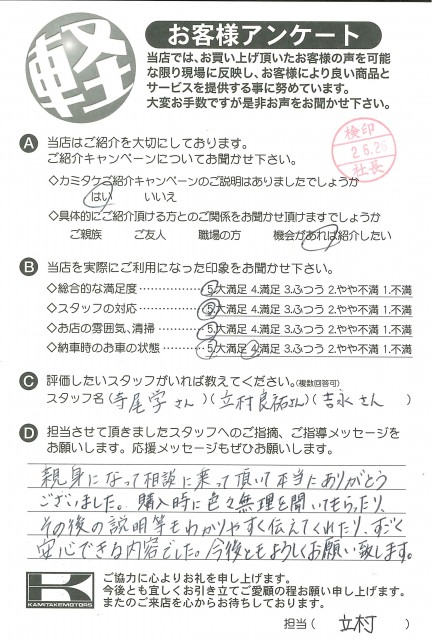 軽
お客様アンケート
当店では、お買い上げ頂いたお客様の声を可能
な限り現場に反映し、お客様により良い商品と
サービスを提供する事に努めています。
大変お手数ですが是非お声をお聞かせ下さい。
検印
26.
社長
A 当店はご紹介を大切にしております。
ご紹介キャンペーンについてお聞かせ下さい。
◇カミタケご紹介キャンペーンのご説明はありましたでしょうか
はい いいえ
◇具体的にご紹介頂ける方とのご関係をお聞かせ頂けますでしょうか
ご親族 ご友人 職場の方 機会があれば紹介したい
B 当店を実際にご利用になった印象をお聞かせ下さい。
◇総合的な満足度……………5.大満足 4.満足 3.ふつう 2.やや不満 1.不満
◇スタッフの対応……………5.大満足 4.満足 3.ふつう 2.やや不満 1.不満
◇お店の雰囲気、清掃………5.大満足 4.満足 3.ふつう 2.やや不満 1.不満
◇納車時のお車の状態………5.大満足 4.満足 3.ふつう 2.やや不満 1.不満
C 評価したいスタッフがいれば教えてください。(複数回答可)
スタッフ名(寺尾学さん)(立村良祐さん)(吉永さん )
D 担当させて頂きましたスタッフへのご指摘、ご指導メッセージを
お願いします。応援メッセージもぜひお願いします。
親身になって相談に乗って頂いて本当にありがとう
ございました。購入時に色々無理を聞いてもらったり、
その後の説明等もわかりやすく伝えてくれたり、すごく
安心できる内容でした。今後ともよろしくお願い致します。
K
KAMITAKEMOTORS
ご協力に心よりお礼を申し上げます。
今後とも宜しくお引き立てご愛顧の程お願い申し上げます。
またのご来店を心からお待ちしております。
担当( 立村 )